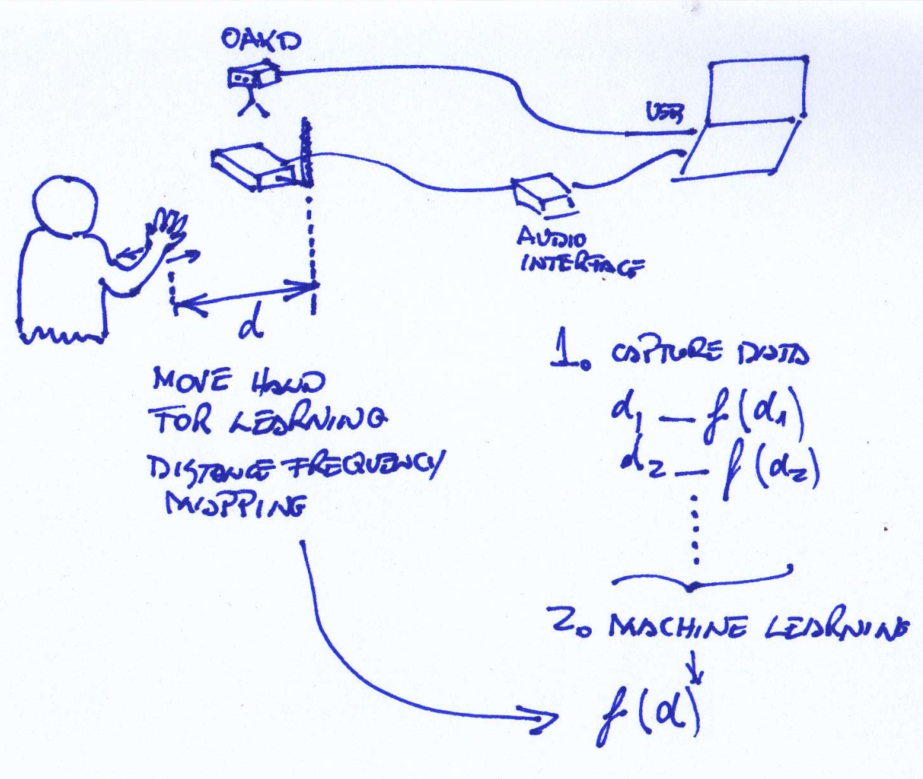 OAKD
USB
AUDIO
INTERFACE
d
MOVE HAND
FOR LEARNING
DISTANCE FREQUENCY
MAPPING
1. CAPTURE DATA
d1 — f(d1)
d2 — f(d2)
2. MACHINE LEARNING
f(d)